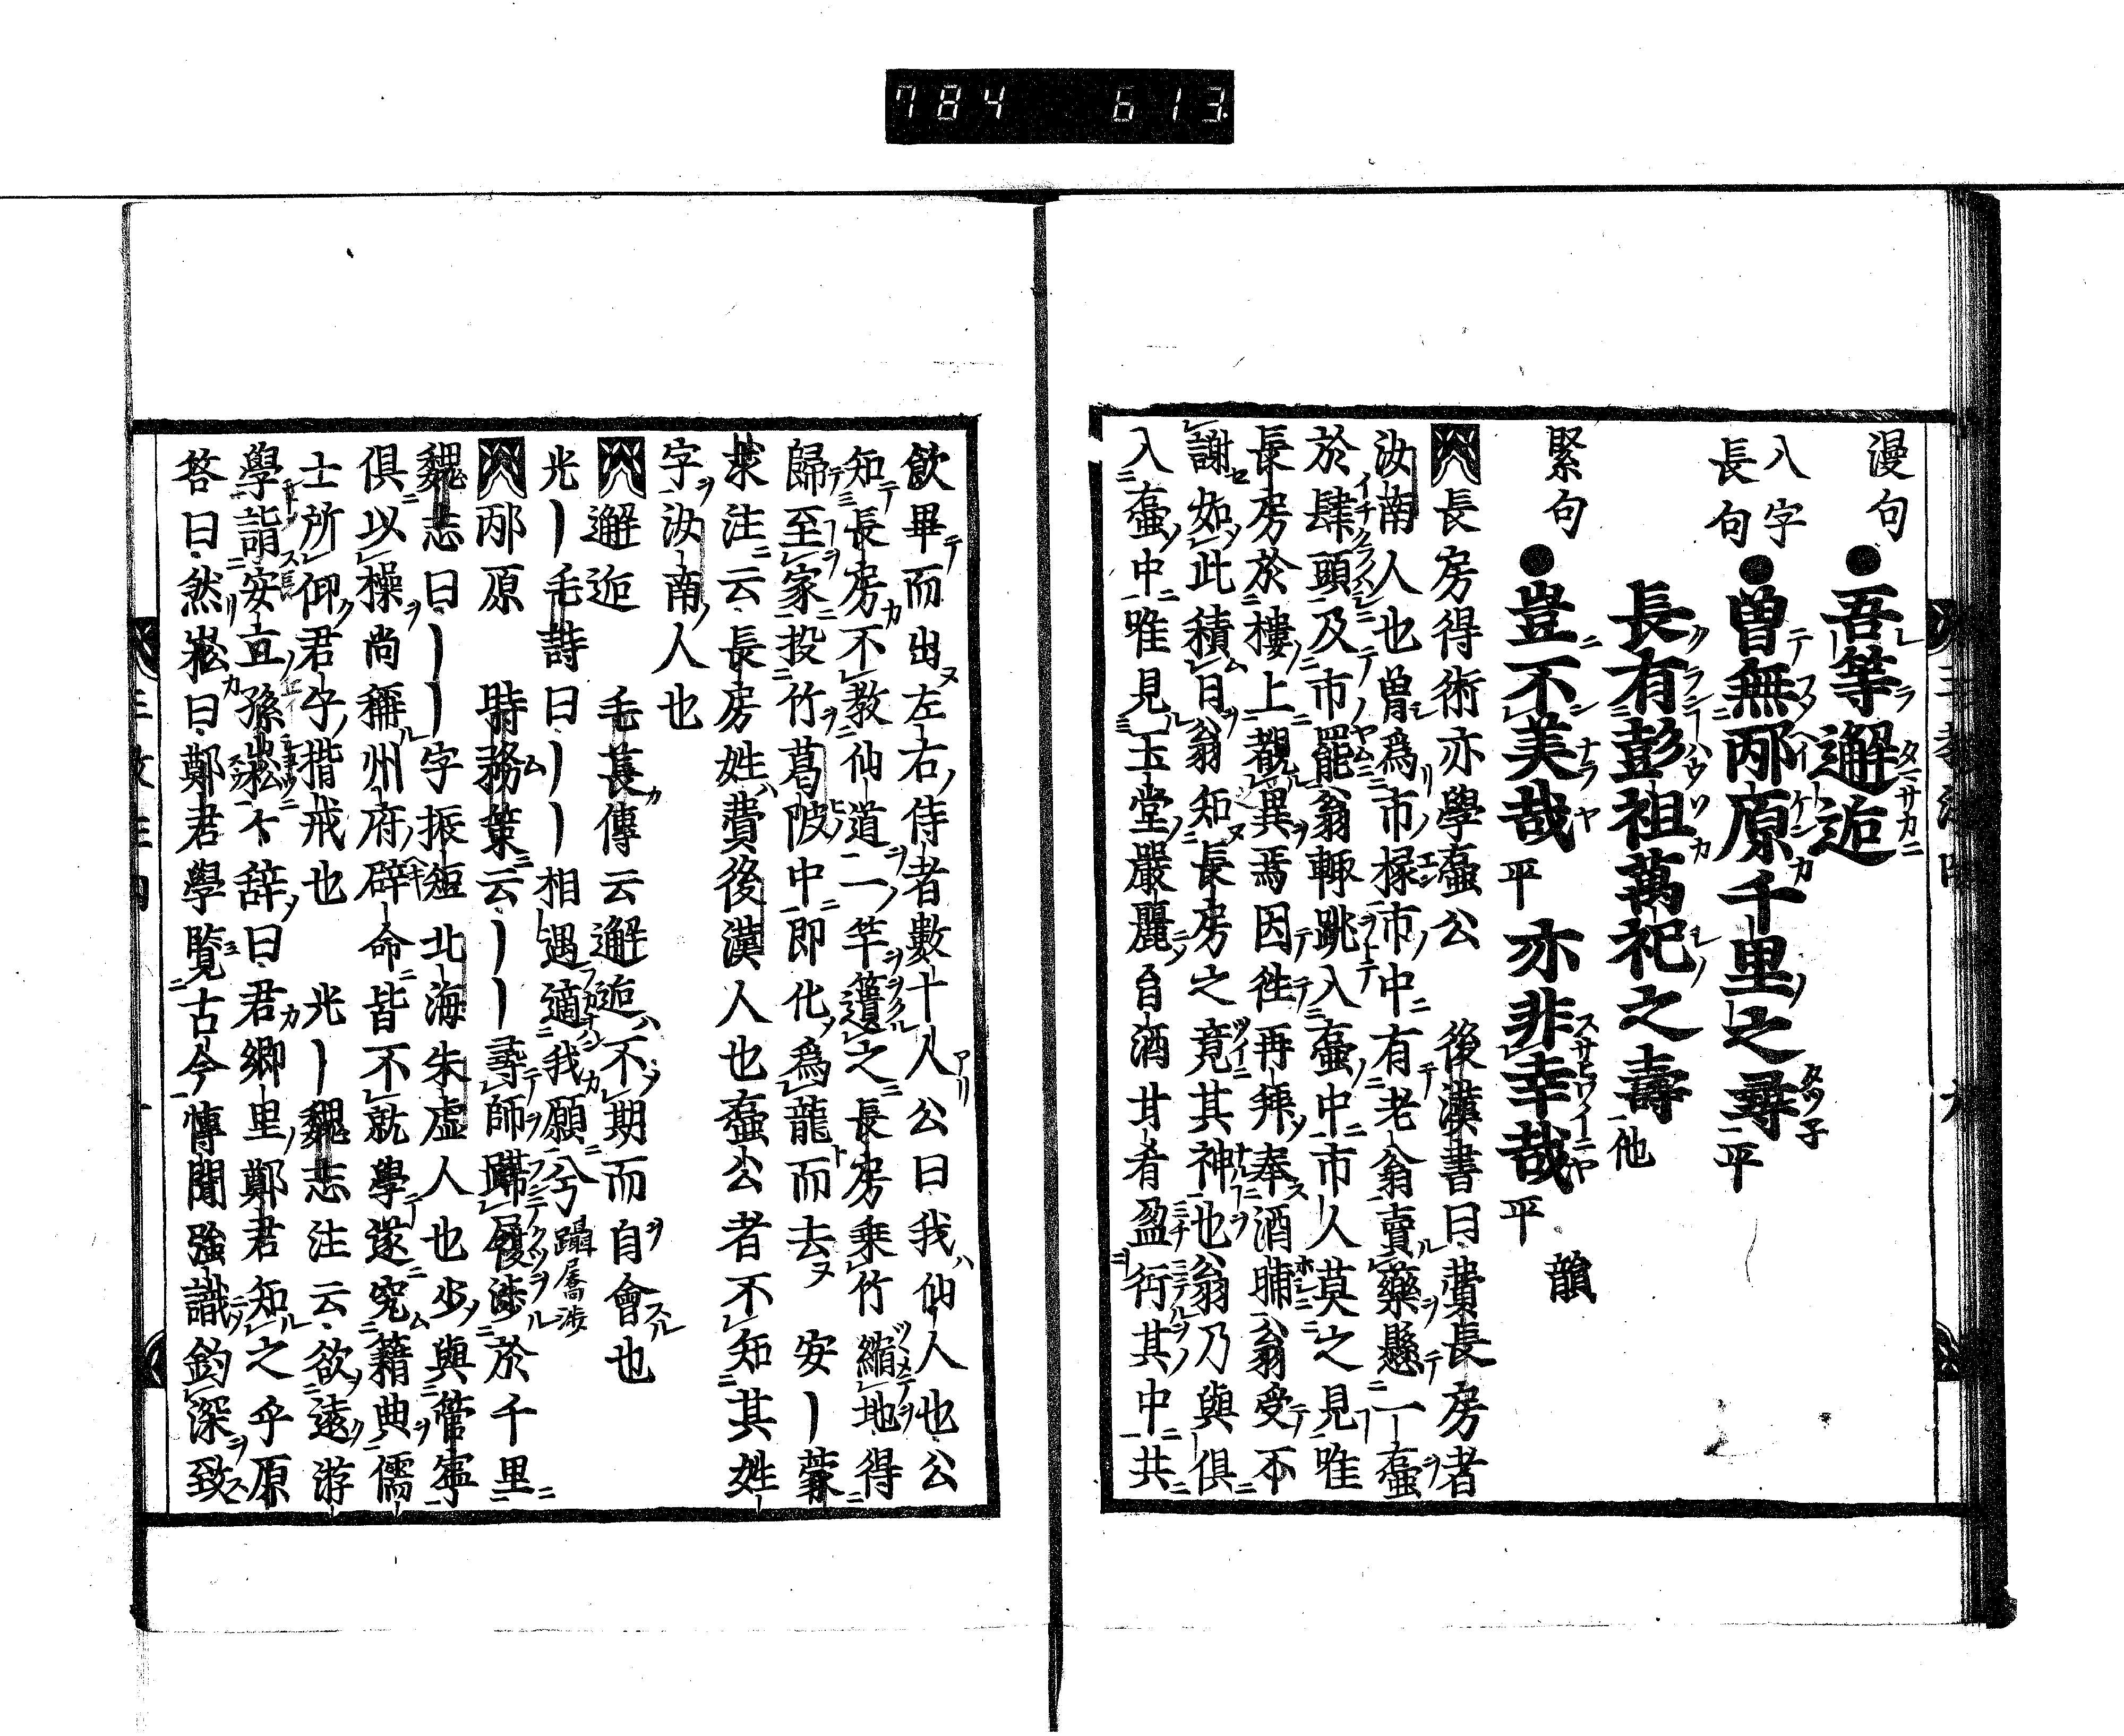 784 613
漫句●吾等邂逅
八字
長句●曽無邴原千里之尋平
長有彭祖萬祀之壽他
緊句●豈不美哉平 亦非幸哉平 韻
長房得術亦學壷公 後漢書曰費長房者
汝南人也曽爲市掾市中有老翁賣藥懸一壷
於肆頭及市罷翁輙跳入壷中市人莫之見唯
長房於樓上覩異焉因徃再拜奉酒脯翁受不
謝如此積日翁知長房之竟其神也翁乃與俱
入壷中唯見玉堂嚴麗旨酒甘肴盈衍其中共
飲畢而出左右侍者數十人公曰我仙人也公
知長房不教仙道二竿遺之長房乗竹縮地得
歸至家投竹葛陂中即化爲龍而去 安ー蒙
求注云長房姓費後漢人也壷公者不知其姓
字汝南人也
邂逅 毛萇傳云邂逅不期而自會也
光ー毛詩曰ーー相遇適我願兮
邴原 時務策云ーー尋師躡屩渉於千里
魏志曰ーー字振短北海朱虚人也少與管寧
俱以操尚稱州府辟命皆不就學遂究籍典儒
士所仰君子揩戒也 光ー魏志注云欲遠游
學詣安丘孫崧不辞曰君卿里鄭君知之乎原
答曰然崧曰鄭君學覧古今博聞強識鈎深致